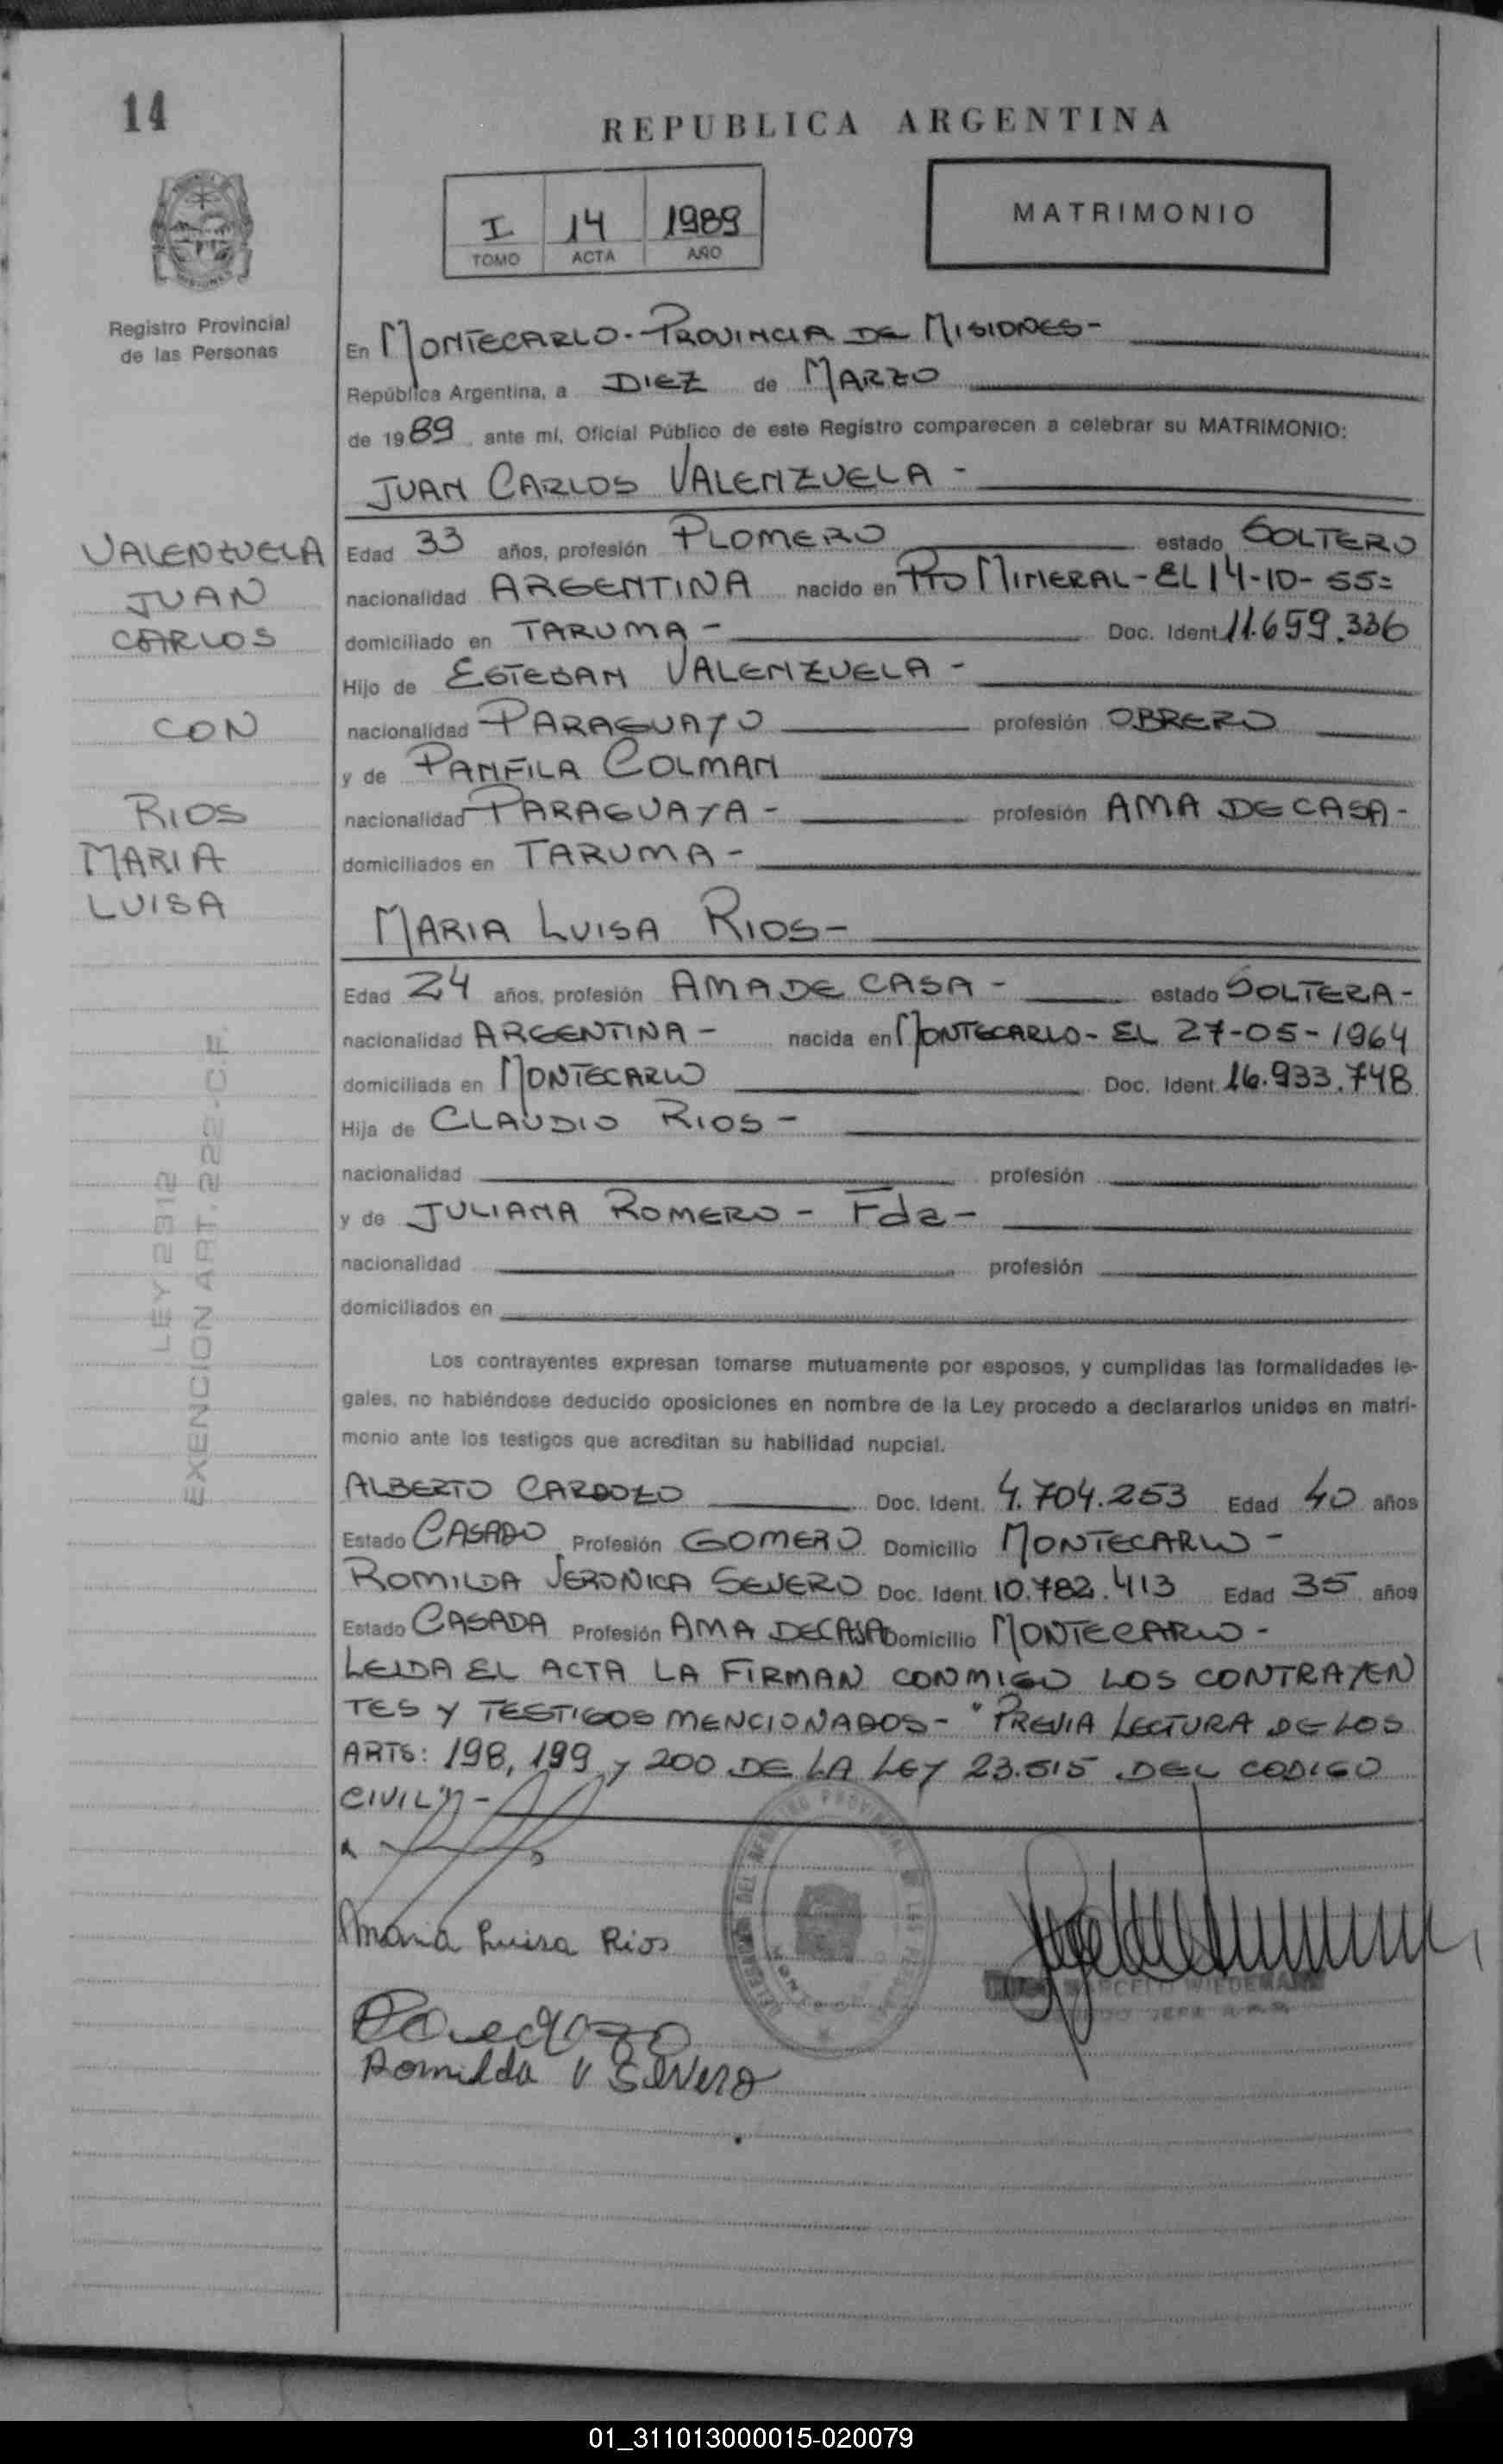 14
REPUBLICA ARGENTINA
I 14 1989
TOMO ACTA AÑO
MATRIMONIO
MISIONES
Registro Provincial
de las Personas
En MONTECARLO - PROVINCIA DE MISIONES -
República Argentina, a DIEZ de MARZO
de 1989, ante mí, Oficial Público de este Registro comparecen a celebrar su MATRIMONIO:
JUAN CARLOS VALENZUELA -
VALENZUELA
JUAN
CARLOS
CON
RIOS
MARIA
LUISA
LEY 2312
EXENCION ART. 222-C.F.
Edad 33 años, profesión PLOMERO estado SOLTERO
nacionalidad ARGENTINA nacido en PTO MINERAL - EL 14-10-55=
domiciliado en TARUMA - Doc. Ident. 11.659.336
Hijo de ESTEBAN VALENZUELA -
nacionalidad PARAGUAYO profesión OBRERO
y de PANFILA COLMAN
nacionalidad PARAGUAYA - profesión AMA DE CASA -
domiciliados en TARUMA -
MARIA LUISA RIOS -
Edad 24 años, profesión AMA DE CASA - estado SOLTERA -
nacionalidad ARGENTINA - nacida en MONTECARLO - EL 27-05-1964
domiciliada en MONTECARLO Doc. Ident. 16.933.748
Hija de CLAUDIO RIOS -
nacionalidad profesión
y de JULIANA ROMERO - Fda -
nacionalidad profesión
domiciliados en
Los contrayentes expresan tomarse mutuamente por esposos, y cumplidas las formalidades le-
gales, no habiéndose deducido oposiciones en nombre de la Ley procedo a declararlos unidos en matri-
monio ante los testigos que acreditan su habilidad nupcial.
ALBERTO CARDOZO Doc. Ident. 4.704.253 Edad 40 años
Estado CASADO Profesión GOMERO Domicilio MONTECARLO -
ROMILDA VERONICA SEVERO Doc. Ident. 10.782.413 Edad 35 años
Estado CASADA Profesión AMA DE CASA Domicilio MONTECARLO -
LEIDA EL ACTA LA FIRMAN CONMIGO LOS CONTRAYEN
TES Y TESTIGOS MENCIONADOS - "PREVIA LECTURA DE LOS
ARTS: 198, 199 y 200 DE LA LEY 23.515 DEL CODIGO
CIVIL" -
Maria Luisa Rios
Romilda V Severo
MARCELO WIEDEMANN
01_311013000015-020079